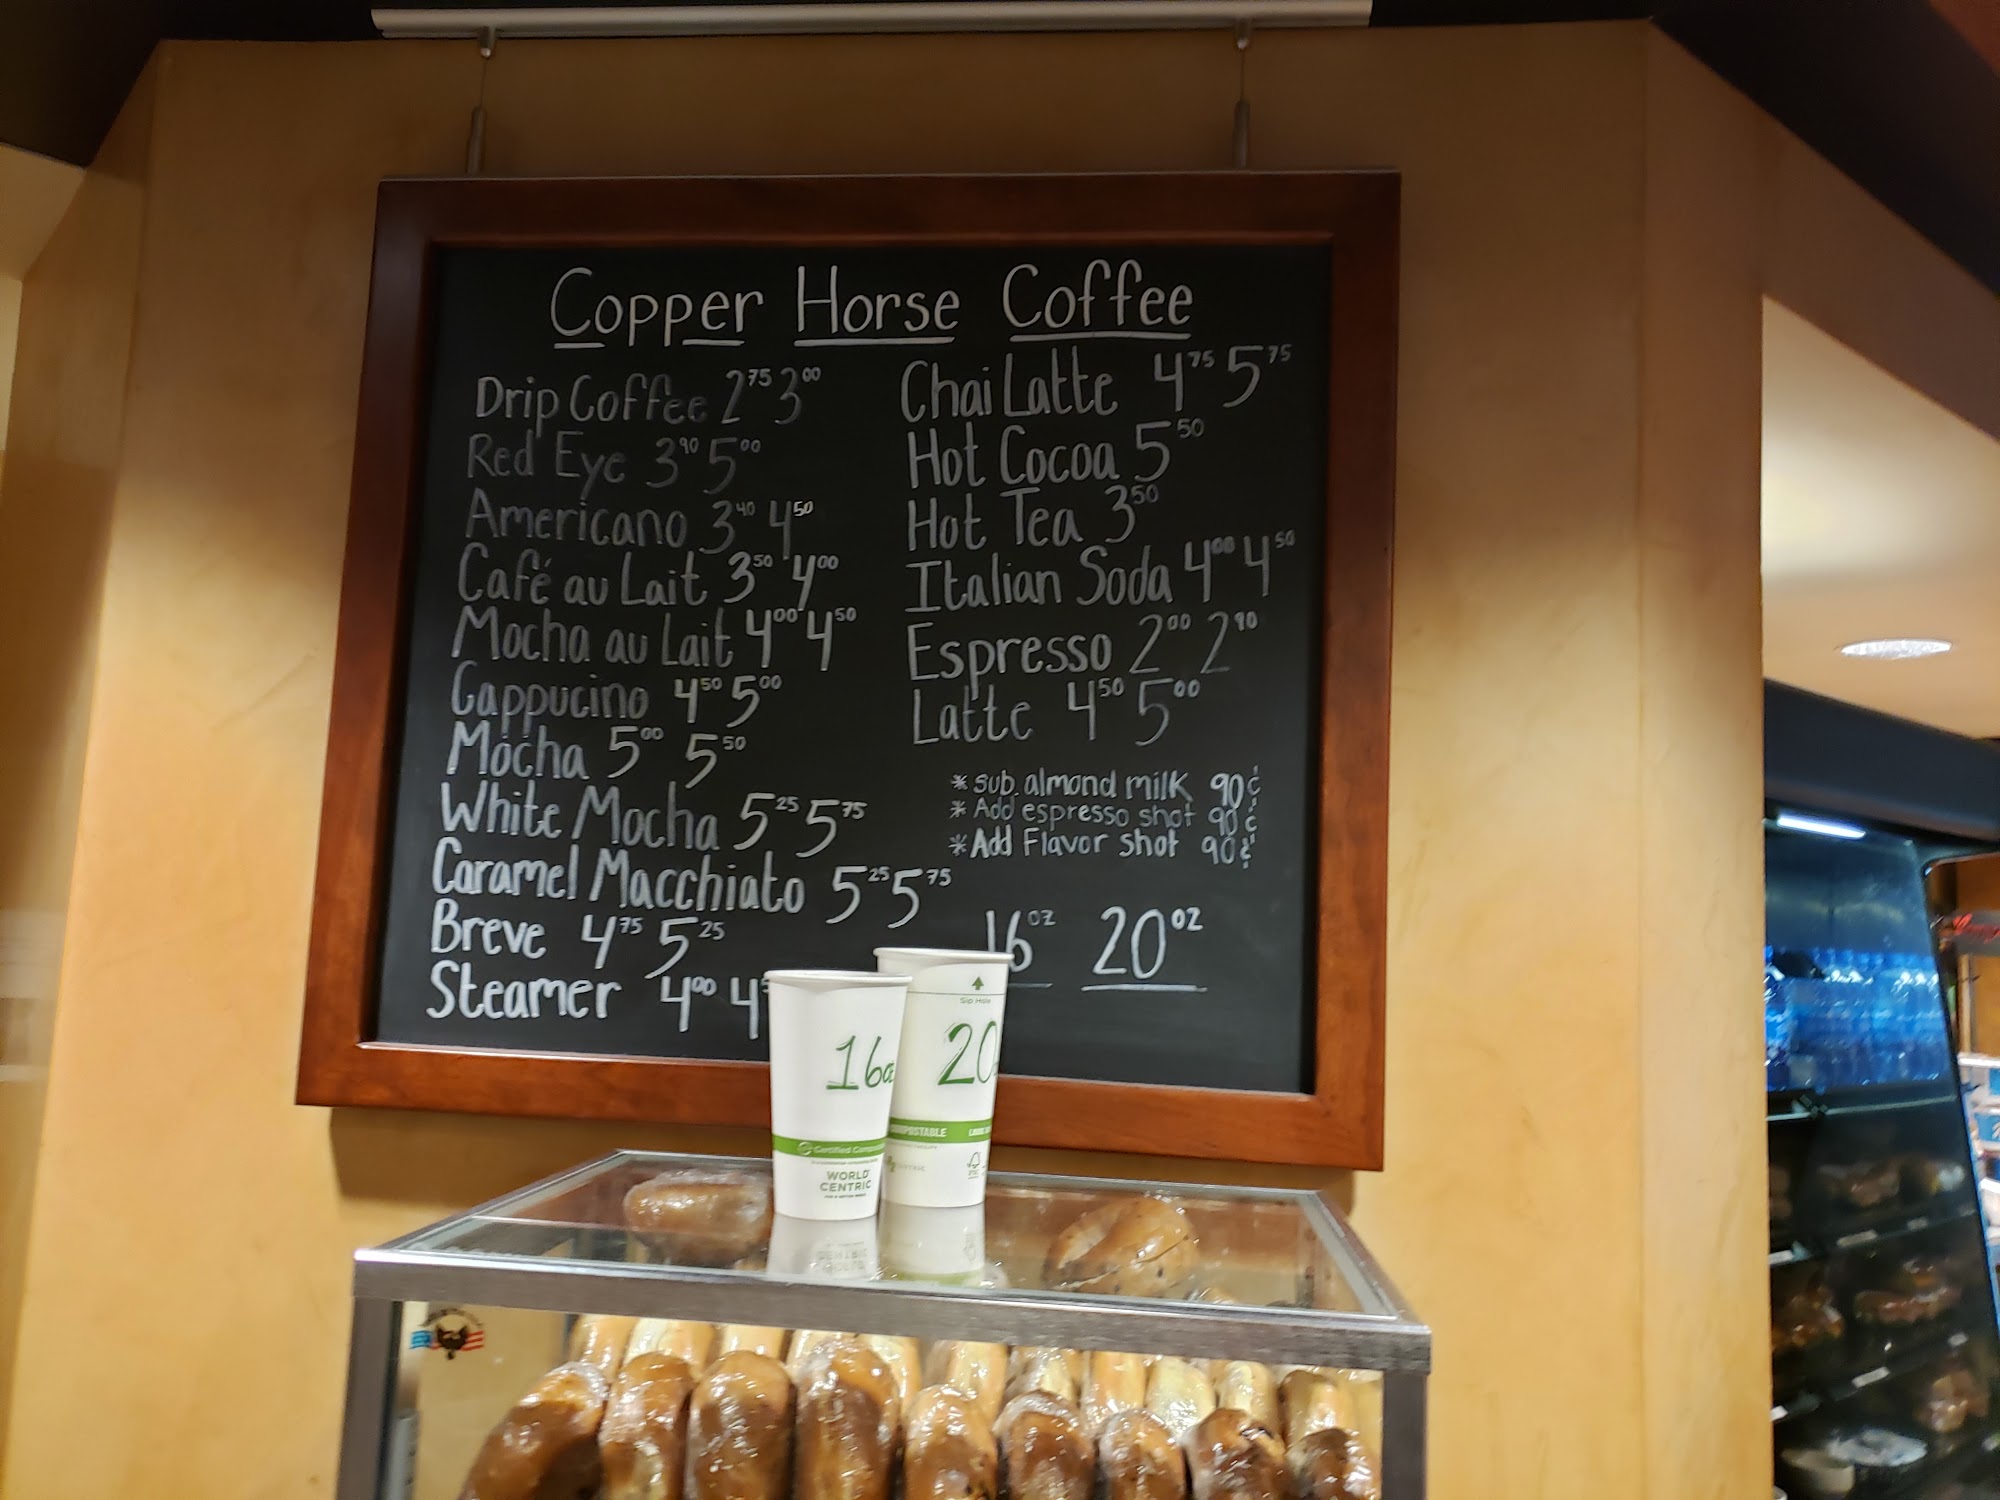 Copper Horse Coffee
Drip Coffee 2⁷⁵ 3⁰⁰
Red Eye 3⁹⁰ 5⁰⁰
Americano 3⁴⁰ 4⁵⁰
Café au Lait 3⁵⁰ 4⁰⁰
Mocha au Lait 4⁰⁰ 4⁵⁰
Cappucino 4⁵⁰ 5⁰⁰
Mocha 5⁰⁰ 5⁵⁰
White Mocha 5²⁵ 5⁷⁵
Caramel Macchiato 5²⁵ 5⁷⁵
Breve 4⁷⁵ 5²⁵
Steamer 4⁰⁰ 4
Chai Latte 4⁷⁵ 5⁷⁵
Hot Cocoa 5⁵⁰
Hot Tea 3⁵⁰
Italian Soda 4⁰⁰ 4⁵⁰
Espresso 2⁰⁰ 2⁹⁰
Latte 4⁵⁰ 5⁰⁰
* sub. almond milk 90¢
* Add espresso shot 90¢
* Add Flavor shot 90¢
16 oz 20 oz
16oz
Certified
WORLD
CENTRIC
Sip Hole
20